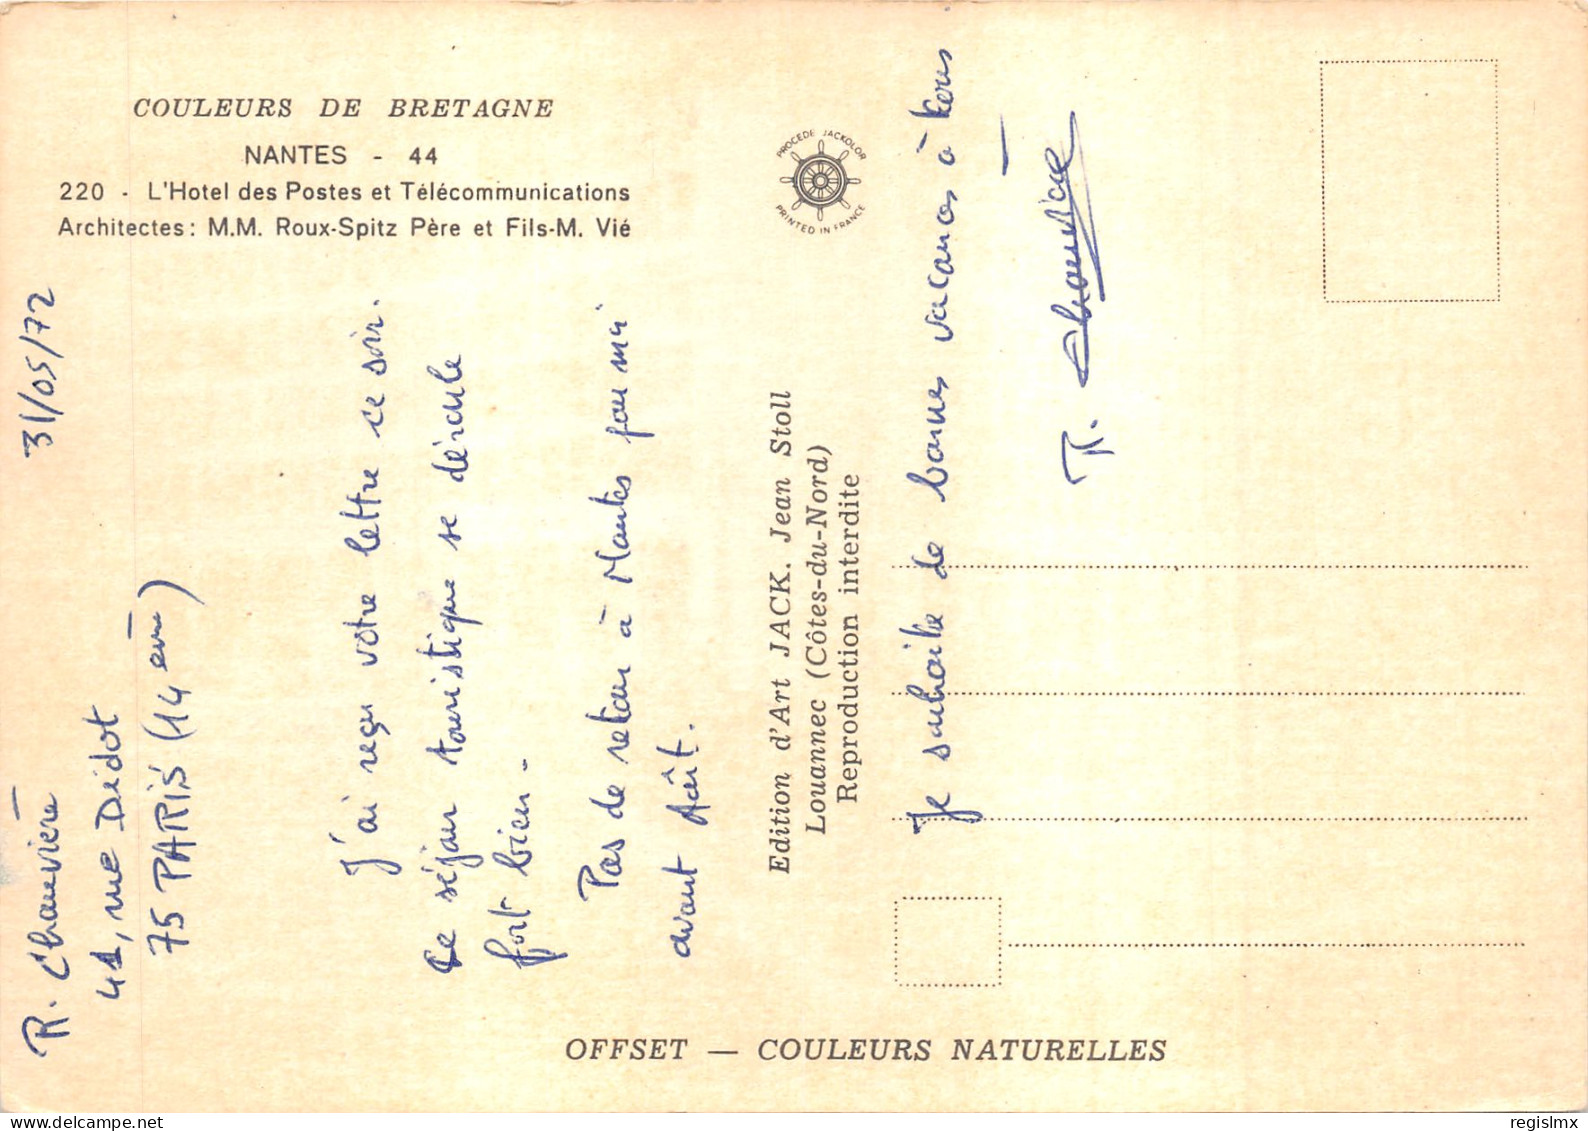 COULEURS DE BRETAGNE
NANTES - 44
220 - L'Hotel des Postes et Télécommunications
Architectes: M.M. Roux-Spitz Père et Fils-M. Vié
PROCEDE JACKOLOR
PRINTED IN FRANCE
R. Chauvière
41, rue Didot
75 PARIS (14 eme)
31/05/72
J'ai reçu votre lettre ce soir.
Le séjour touristique se déroule
fort bien.
Pas de retour à Nantes pour moi
avant Août.
Edition d'Art JACK. Jean Stoll
Louannec (Côtes-du-Nord)
Reproduction interdite
Je souhaite de bonnes vacances à tous
R. Chauvière
OFFSET — COULEURS NATURELLES
regislmx